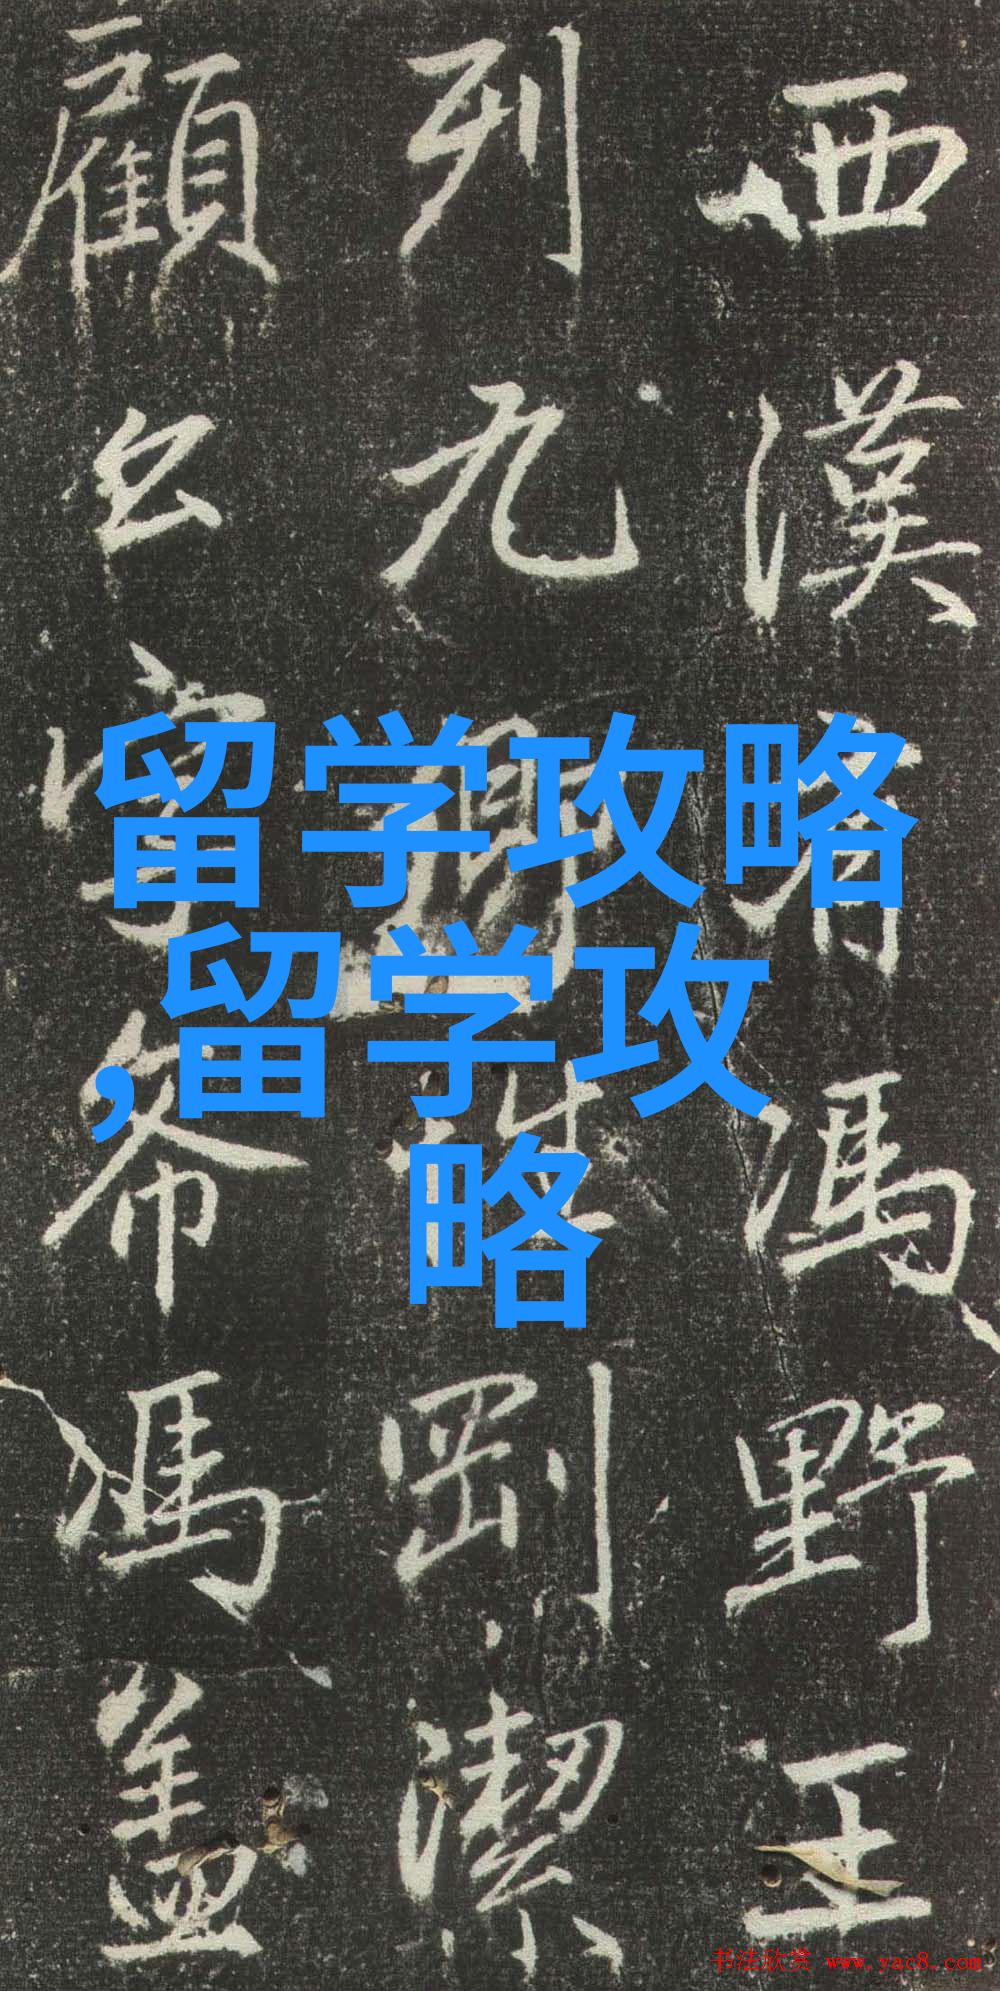 西漢馮野王
列九剛潔
顧公字希馮盖
留学攻略
,留学攻
略
书法欣赏 www.yac8.com